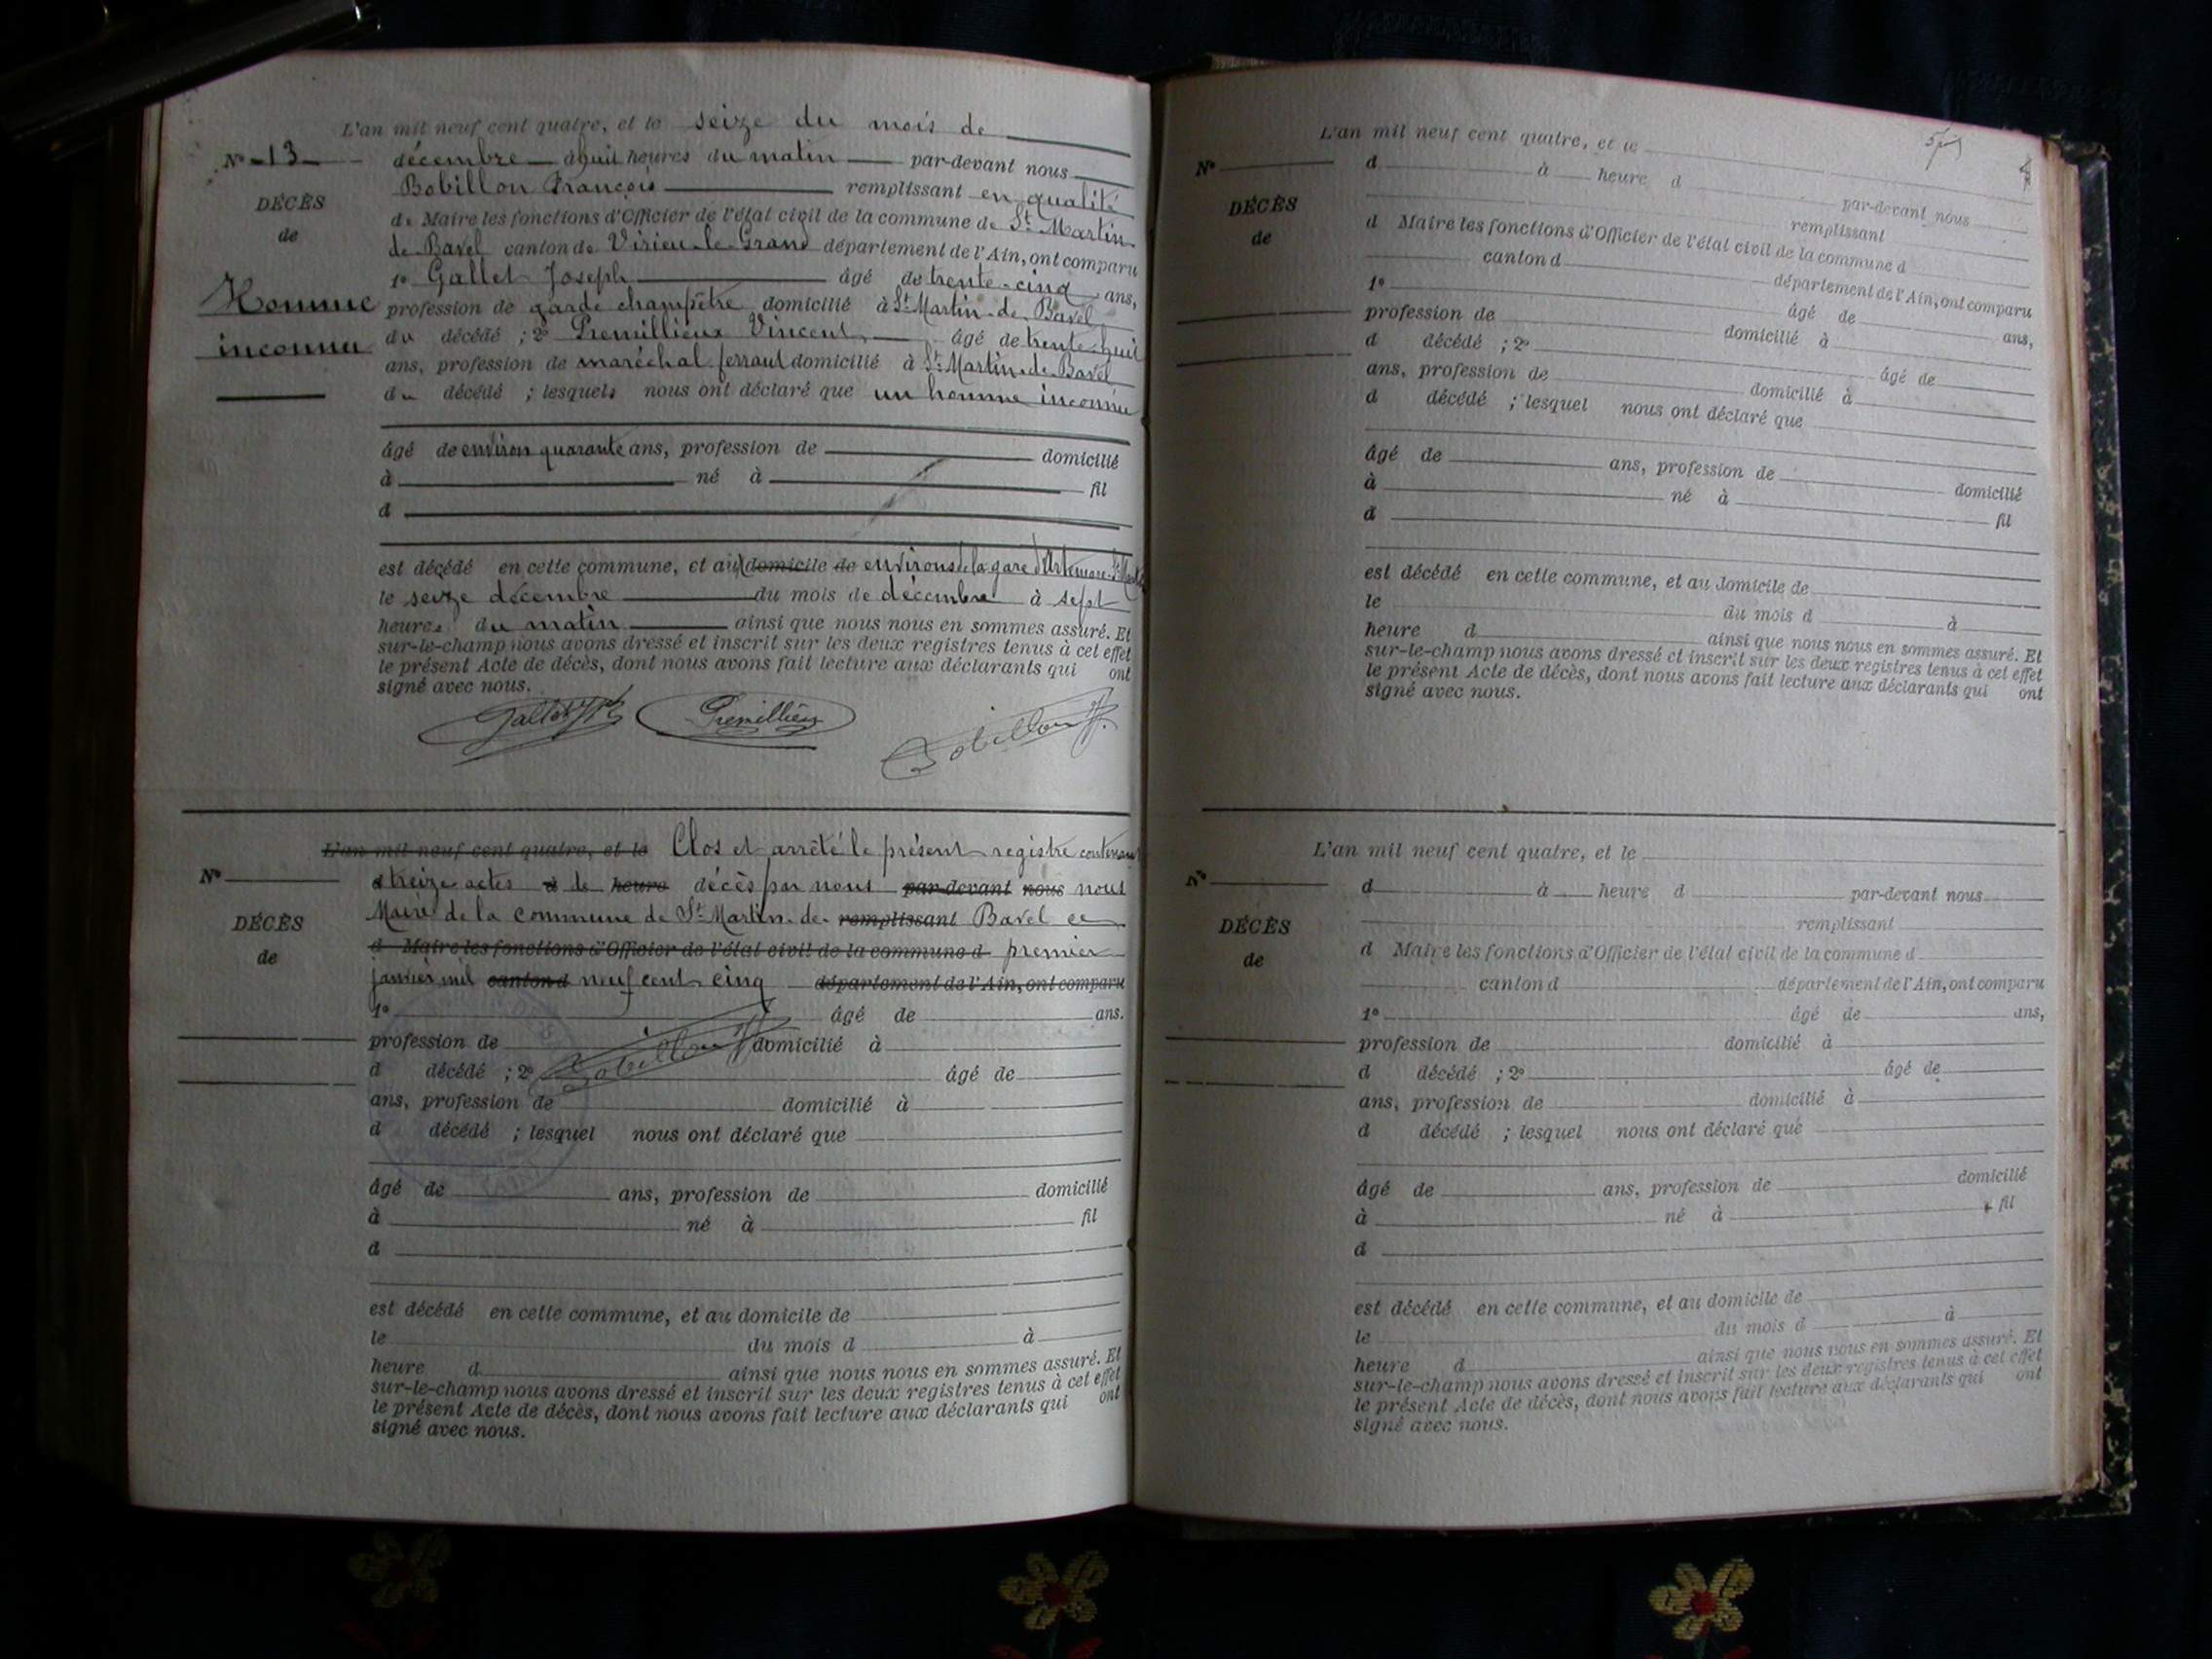 L'an mil neuf cent quatre, et le seize du mois de
N° 13 décembre à huit heures du matin par-devant nous
Bobillon François remplissant en qualité
DÉCÈS
de
de Maire les fonctions d'Officier de l'état civil de la commune de St. Martin
de Bavel canton de Virieu-le-Grand département de l'Ain, ont comparu
1° Gallet Joseph âgé de trente-cinq ans,
Homme
inconnu
profession de garde champêtre domicilié à St. Martin-de-Bavel
du décédé ; 2° Premillieux Vincent âgé de trente-huit
ans, profession de maréchal ferrant domicilié à St. Martin-de-Bavel
du décédé ; lesquels nous ont déclaré que un homme inconnu
âgé de environ quarante ans, profession de domicilié
à né à fil
d
est décédé en cette commune, et aux domicile de environs de la gare d'Artemare-St
le seize décembre du mois de décembre à sept
heures du matin ainsi que nous nous en sommes assuré. Et
sur-le-champ nous avons dressé et inscrit sur les deux registres tenus à cet effet
le présent Acte de décès, dont nous avons fait lecture aux déclarants qui ont
signé avec nous.
Gallet Premillieux Bobillon
L'an mil neuf cent quatre, et le Clos et arrêté le présent registre contenant
N° treize actes de heure décès par nous par-devant nous nous
Maire de la commune de St. Martin-de- remplissant Bavel ce
DÉCÈS
de
d Maire les fonctions d'Officier de l'état civil de la commune d premier
janvier mil canton d neuf cent cinq département de l'Ain, ont comparu
1° âgé de ans.
profession de domicilié à
Bobillon
d décédé ; 2° âgé de
ans, profession de domicilié à
d décédé ; lesquel nous ont déclaré que
âgé de ans, profession de domicilié
à né à fil
d
est décédé en cette commune, et au domicile de
le du mois d à
heure d ainsi que nous nous en sommes assuré. Et
sur-le-champ nous avons dressé et inscrit sur les deux registres tenus à cet effet
le présent Acte de décès, dont nous avons fait lecture aux déclarants qui ont
signé avec nous.
L'an mil neuf cent quatre, et le
N° d à heure d par-devant nous
remplissant
DÉCÈS
de
d Maire les fonctions d'Officier de l'état civil de la commune d
canton d département de l'Ain, ont comparu
1° âgé de ans,
profession de domicilié à
d décédé ; 2° âgé de
ans, profession de domicilié à
d décédé ; lesquel nous ont déclaré que
âgé de ans, profession de domicilié
à né à fil
d
est décédé en cette commune, et au domicile de
le du mois d à
heure d ainsi que nous nous en sommes assuré. Et
sur-le-champ nous avons dressé et inscrit sur les deux registres tenus à cet effet
le présent Acte de décès, dont nous avons fait lecture aux déclarants qui ont
signé avec nous.
L'an mil neuf cent quatre, et le
N° d à heure d par-devant nous
remplissant
DÉCÈS
de
d Maire les fonctions d'Officier de l'état civil de la commune d
canton d département de l'Ain, ont comparu
1° âgé de ans,
profession de domicilié à
d décédé ; 2° âgé de
ans, profession de domicilié à
d décédé ; lesquel nous ont déclaré que
âgé de ans, profession de domicilié
à né à fil
d
est décédé en cette commune, et au domicile de
le du mois d à
heure d ainsi que nous nous en sommes assuré. Et
sur-le-champ nous avons dressé et inscrit sur les deux registres tenus à cet effet
le présent Acte de décès, dont nous avons fait lecture aux déclarants qui ont
signé avec nous.